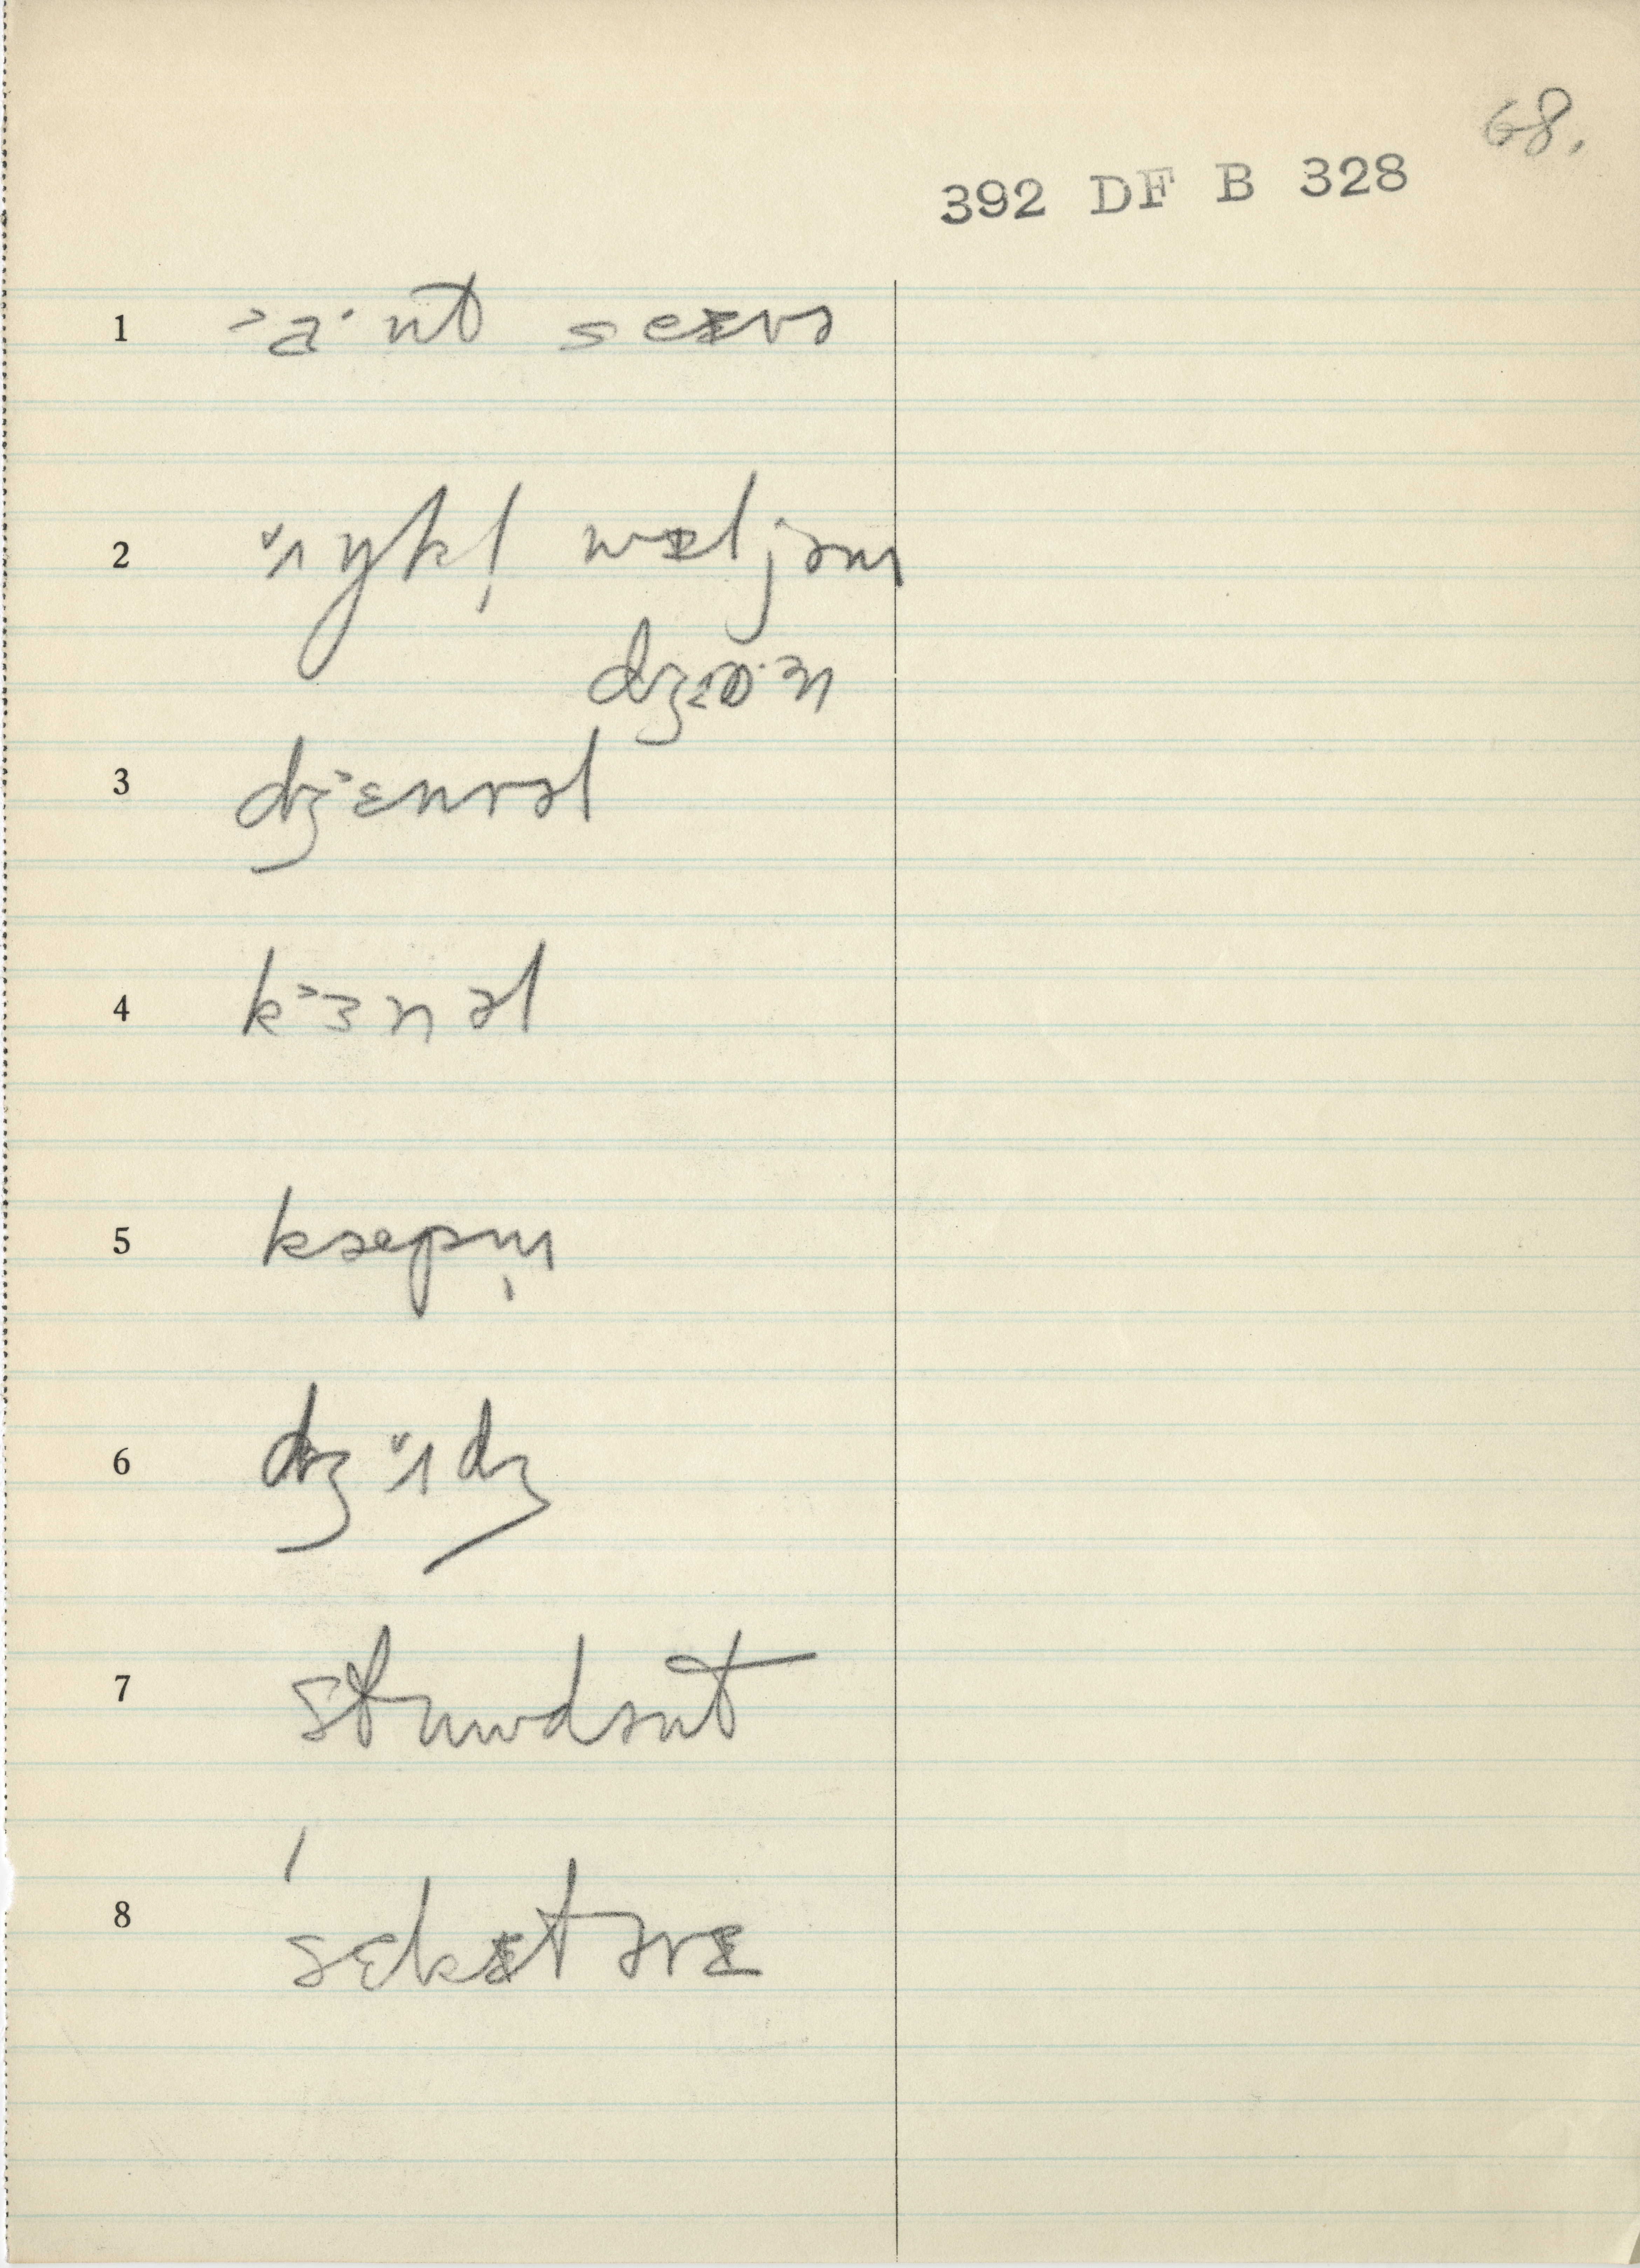 68.
392 DF B 328
1 ˃a· nt seᵻrə
2 ʌŋkl̩ wɪljəm
dʒɔ·ən
3 dʒ˃ɛnrəl
4 k˃ɜnəl
5 kæpm̩
6 dʒʌdʒ
7 stuwdənt
8 ˈsɛkᵻtərɪ